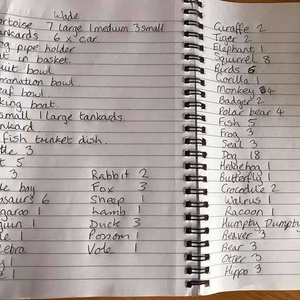 Wade
ortoise 7 large 1 medium 3 small
ankards 6 x car
pipe holder
in basket
bowl
oronation bowl.
af bowl
king boat.
small 1 large tankards
ankard
fish trinket dish.
tle 3
t 5
3 Rabbit 2
le boy Fox 3
osaurs 6 Sheep 1
garoo 1 Lamb 1
guin 1 Duck 3
le 1 Possom 1
ebra 1 Vole 1
1
1
Giraffe 2
Tiger 2
Elephant 1
Squirrel 8
Birds 6
Gorilla 1
Monkey 4
Badger 2
Polar bear 4
Fish 5
Frog 3
Seal 3
Dog 18
Hedgehog 1
Butterfly 1
Crocodile 2
Walrus 1
Racoon 1
Humpty Dumpty
Beaver 3
Bear 3
Otter 3
Hippo 3